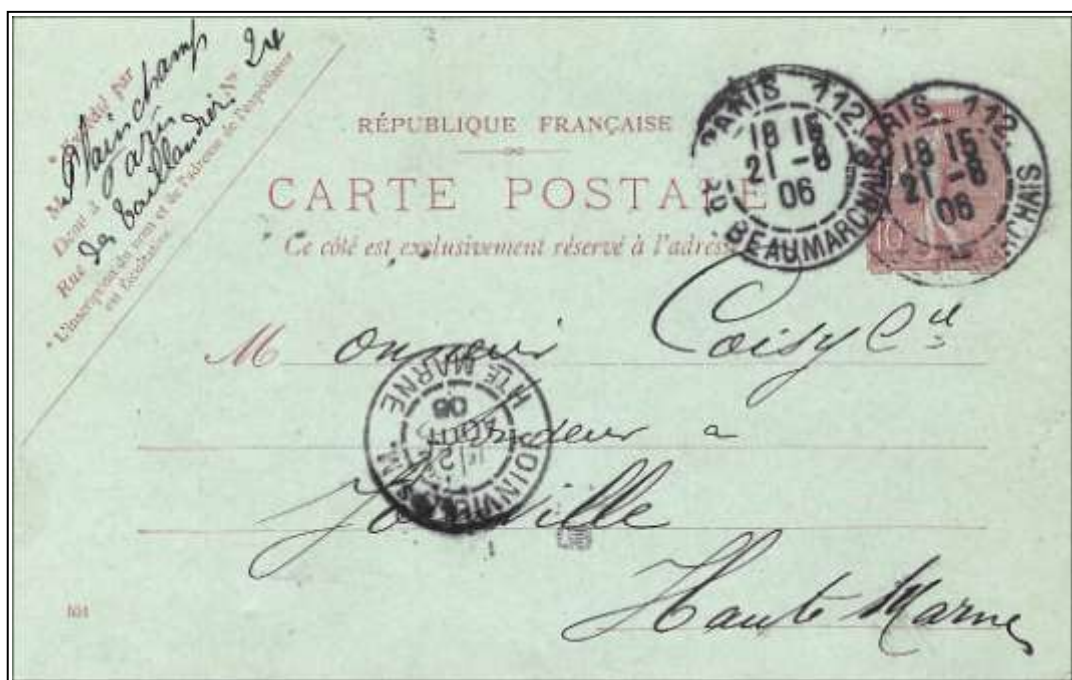 * Expédié par
M Plainchamp
Demt à Paris
Rue des Taillandiers No 24
* L'inscription du nom et de l'adresse de l'expéditeur
est facultative.
RÉPUBLIQUE FRANÇAISE
CARTE POSTALE
Ce côté est exclusivement réservé à l'adresse
PARIS 112.
18 15
21 - 8
06
BEAUMARCHAIS
PARIS 112.
18 15
21 - 8
06
MARCHAIS
10
Monsieur Coisy Cel
JOINVILLE
HTE MARNE
AOUT
06
fondeur a
Joinville
Haute Marne